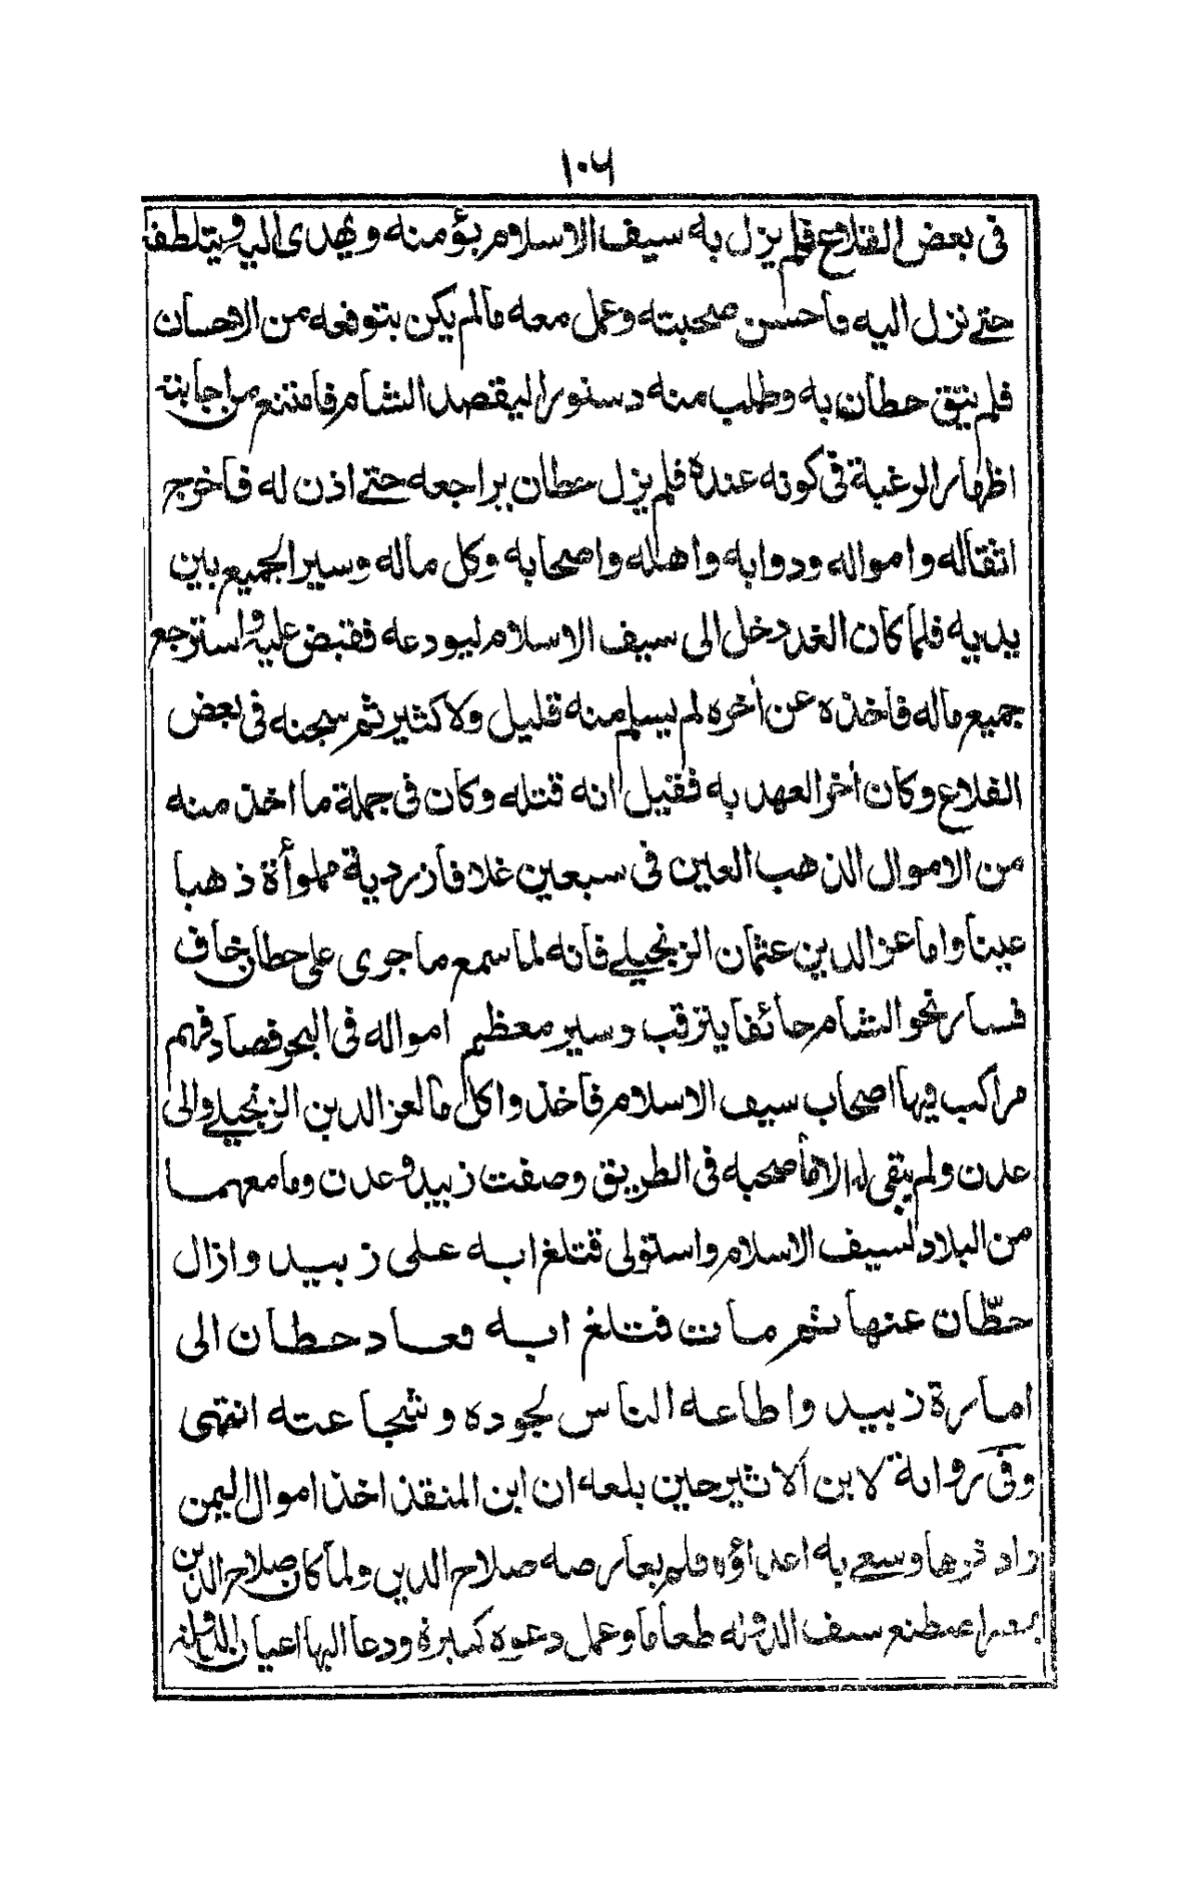 ١٠٦
فى بعض القلاع فلم يزل به سيف الاسلام يؤمنه و يهدى اليه ويتلطف
حتے نزل اليه فأحسن صحبته وعمل معه مالم يكن يتوقعه من الاحسان
فلم يثق حطان به وطلب منه دستورا ليقصد الشام فامتنع من اجابته
اظهارا لرغبة فى كونه عنده فلم يزل حطان يراجعه حتے اذن له فأخرج
اثقاله وامواله ودوابه واهله واصحابه وكل ماله وسير الجميع بين
يديه فلما كان الغد دخل الى سيف الاسلام ليودعه فقبض عليه واسترجع
جميع ماله فأخذه عن أخره لم يسلم منه قليل ولا كثير ثم سجنه فى بعض
القلاع وكان أخر العهد به فقيل انه قتله وكان فى جملة ما اخذ منه
من الاموال الذهب العين فى سبعين غلافا زردية مملوأة ذهبا
عينا واما عز الدين عثمان الزنجيلے فانه لما سمع ما جرى على حطان خاف
فسار نحو الشام خائفا يترقب وسير معظم امواله فى البحر فصادفهم
مراكب فيها اصحاب سيف الاسلام فأخذوا كل ما لعز الدين الزنجيلے والى
عدن ولم يبقى له الا ما صحبه فى الطريق وصفت زبيد وعدن وما معهما
من البلاد لسيف الاسلام واستولى قتلغ ابه على زبيد وازال
حطّان عنها ثم مات قتلغ ابه فعاد حطان الى
امارة زبيد واطاعه الناس لجوده و شجاعته انتهى
وفى رواية لابن الاثير حين بلغه ان ابن المنقذ اخذ اموال اليمن
وادخرها وسعے به اعداؤه فلم يعارضه صلاح الدين ولما كان صلاح الدين
بمصر اصطنع سيف الدوله طعاما وعمل دعوة كبيرة ودعا اليها اعيان الدولة